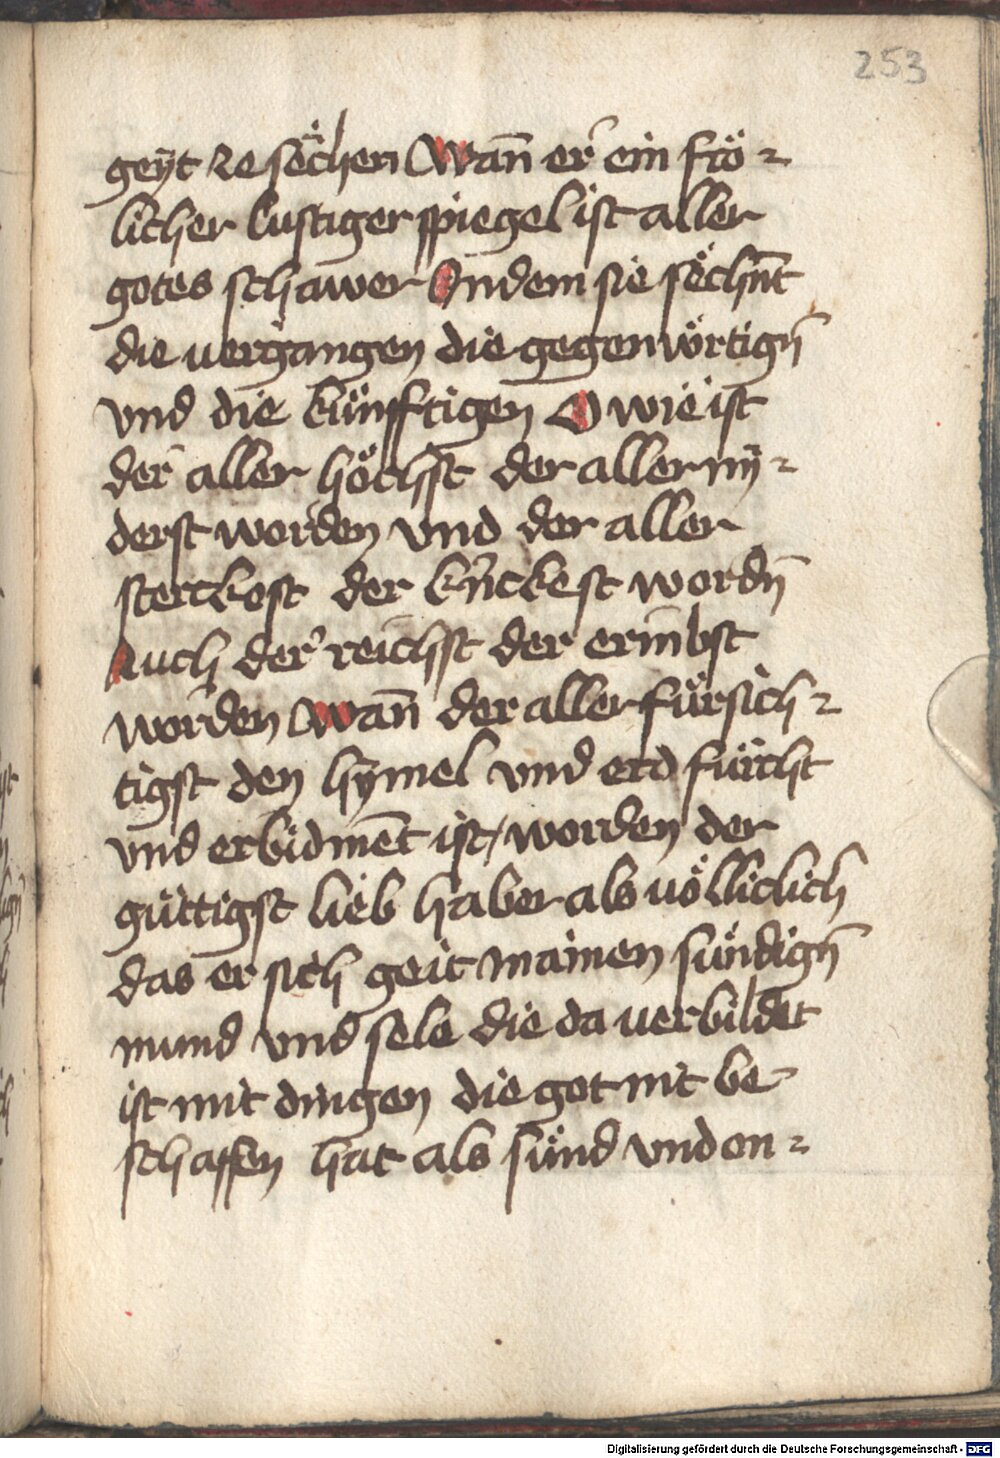 253
geÿt ze sëchen Wan̄ er ein frö-
licher lustiger spiegel ist aller
gotes schawer Jn dem sie sëchn̄t
die uergangen die gegenwörtign̄
vnd die künfftigen O wie ist
der aller höchst der aller ny-
derst worden vnd der aller
sterckest der krückest wordn̄
Auch der reichst der ermbst
worden Wan̄ der aller fürsich-
tigst den hymel vnd erd fürcht
vnd erbidmet ist / worden der
güttigst lieb haber als uölliclich
das er sich geit mainen sündign̄
mund vnd sele die da uerbildet
ist mit dingen die got nit be-
schaffen hat als sünd vnd on-
Digitalisierung gefördert durch die Deutsche Forschungsgemeinschaft - DFG